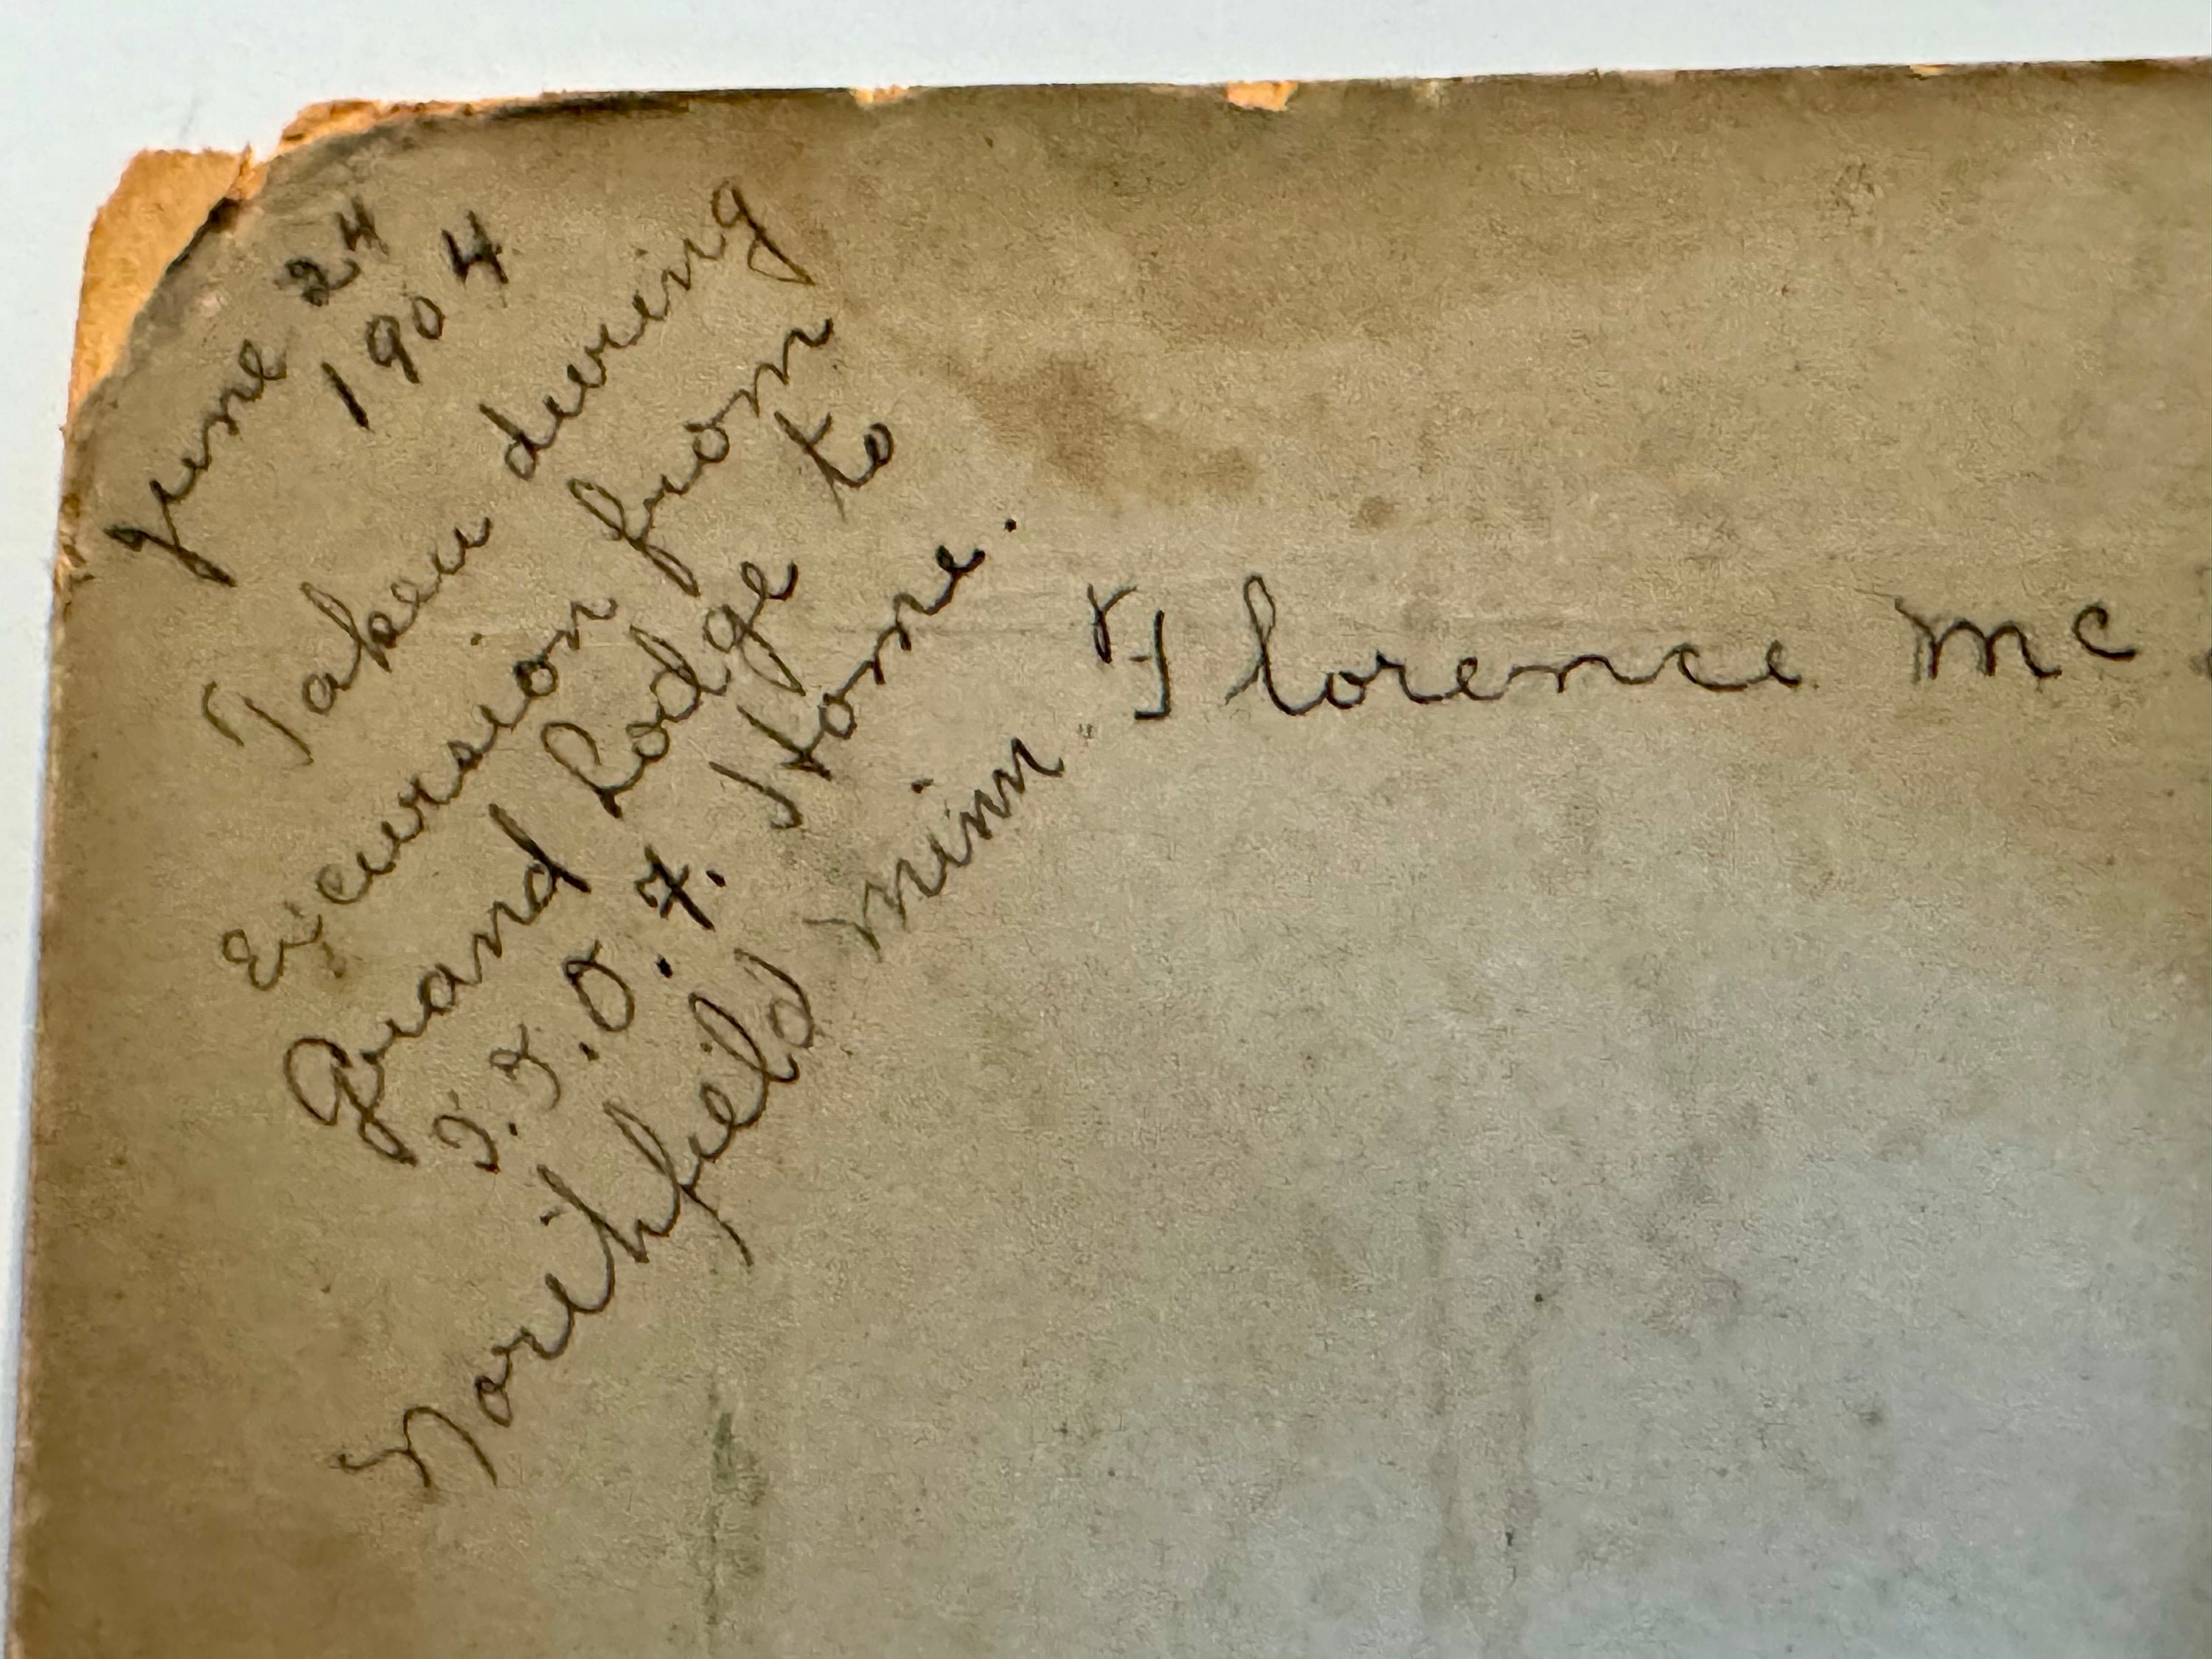 June 24
1904
Taken during
Excursion from
Grand Lodge to
I.I.O.F. Home.
Northfield Minn
Florence Mc